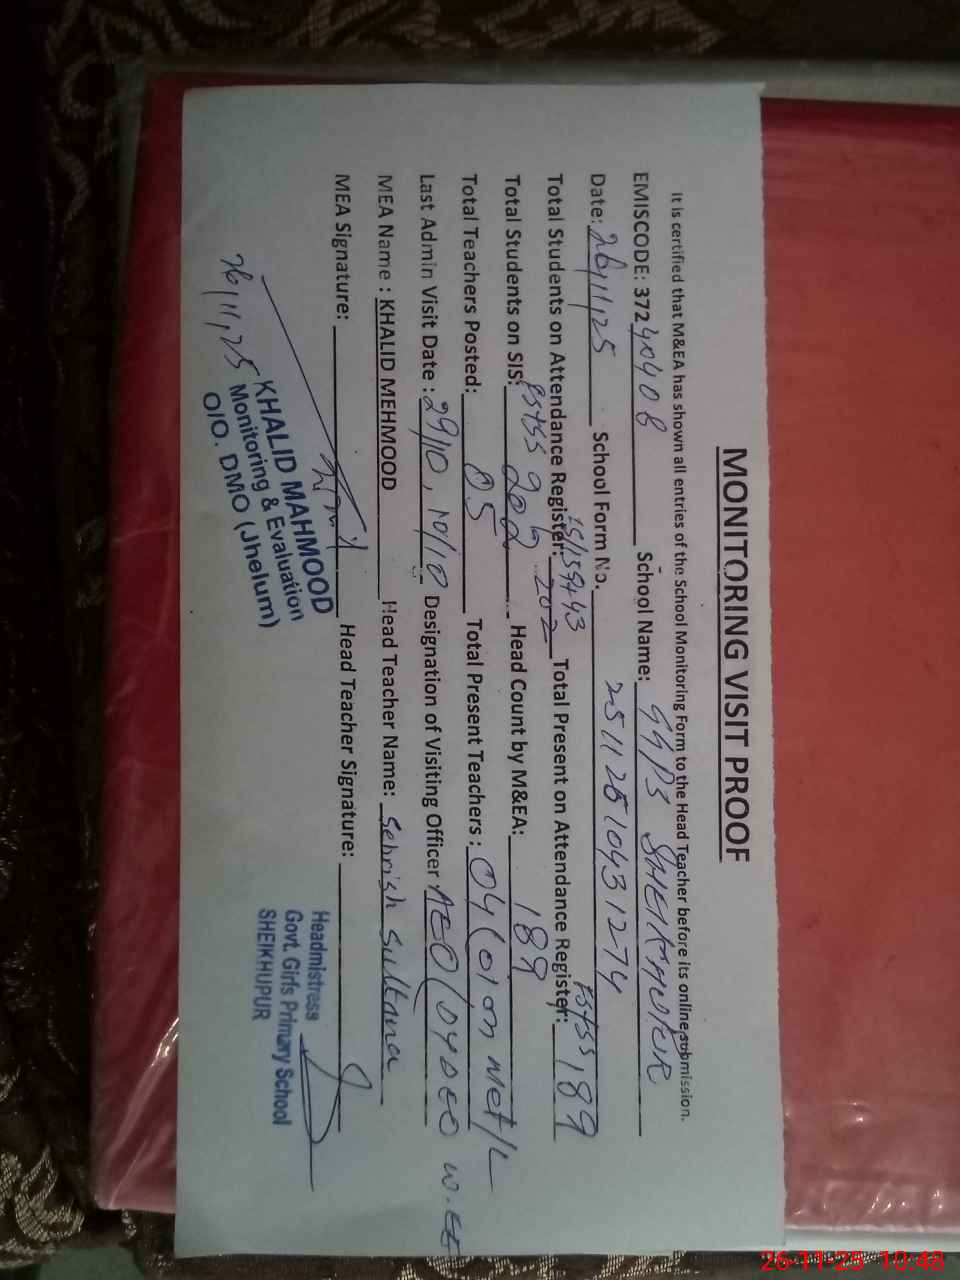 MONITORING VISIT PROOF
It is certified that M&EA has shown all entries of the School Monitoring Form to the Head Teacher before its online submission.
EMISCODE: 37240408 School Name: GGPS SHEIKHUPUR
Date: 26/11/25 School Form No. 2511261043 1274
15/159+43 PSTSS
Total Students on Attendance Register: 202 Total Present on Attendance Register: 189
PSTSS 202
Total Students on SIS: 202 Head Count by M&EA: 189
Total Teachers Posted: 05 Total Present Teachers: 04 (01 on Met/L
Last Admin Visit Date: 29/10, 10/10 Designation of Visiting Officer: AEO (DYDEO W-EE
MEA Name : KHALID MEHMOOD Head Teacher Name: Sehrish Sultana
MEA Signature: Head Teacher Signature:
26/11/25
KHALID MAHMOOD
Monitoring & Evaluation
O/O. DMO (Jhelum)
Headmistress
Govt. Girls Primary School
SHEIKHUPUR
26-11-25 10:48